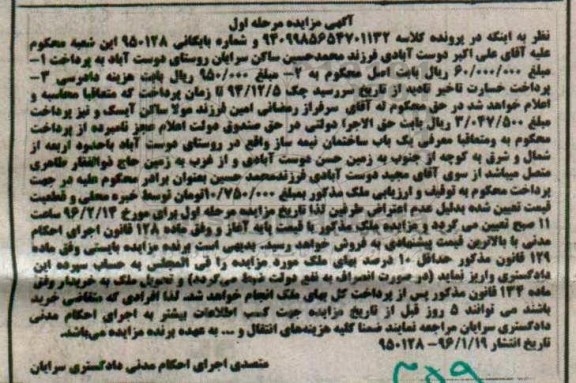 آگهی مزایده مرحله اول
نظر به اینکه در پرونده کلاسه ۹۴۰۹۹۸۵۶۵۴۷۰۱۱۳۲ و شماره بایگانی ۹۵۰۱۲۸ این شعبه محکوم
علیه آقای علی اکبر دوست آبادی فرزند محمدحسین ساکن سرایان روستای دوست آباد به پرداخت ۱-
مبلغ ۶۰/۰۰۰/۰۰۰ ریال بابت اصل محکوم به ۲- مبلغ ۹۵۰/۰۰۰ ریال بابت هزینه دادرسی ۳-
پرداخت خسارت تاخیر تادیه از تاریخ سررسید چک ۹۴/۱۲/۵ تا زمان پرداخت که متعاقبا محاسبه و
اعلام خواهد شد در حق محکوم له آقای سرفراز رمضانی امین فرزند مولا ساکن آیسک و نیز پرداخت
مبلغ ۳/۰۴۷/۵۰۰ ریال بابت حق الاجرا دولتی در حق صندوق دولت اعلام عجز نامبرده از پرداخت
محکوم به ومتعاقبا معرفی یک باب ساختمان نیمه ساز واقع در روستای دوست آباد باحدود اربعه از
شمال و شرق به کوچه از جنوب به زمین حسن دوست آبادی و از غرب به زمین حاج ذوالفقار طاهری
متصل میباشد از سوی آقای مجید دوست آبادی فرزندمحمد حسین بعنوان برادر محکوم علیه در جهت
پرداخت محکوم به توقیف و ارزیابی ملک مذکور بمبلغ ۱۰/۷۵۰/۰۰۰تومان توسط خبره محلی و قطعیت
قیمت تعیین شده بدلیل عدم اعتراض طرفین لذا تاریخ مزایده مرحله اول برای مورخ ۹۶/۲/۱۳ ساعت
۱۱ صبح تعیین می گردد و مزایده ملک مذکور با قیمت پایه آغاز و وفق ماده ۱۲۸ قانون اجرای احکام
مدنی با بالاترین قیمت پیشنهادی به فروش خواهد رسید. بدیهی است برنده مزایده بایستی وفق ماده
۱۲۹ قانون مذکور حداقل ۱۰ درصد بهای ملک مورد مزایده را فی المجلس به حساب سپرده این
دادگستری واریز نماید (در صورت انصراف به نفع دولت ضبط می‌گردد) و تحویل ملک به خریدار وفق
ماده ۱۳۴ قانون مذکور پس از پرداخت کل بهای ملک انجام خواهد شد. لذا افرادی که متقاضی خرید
باشند می توانند ۵ روز قبل از تاریخ مزایده جهت کسب اطلاعات بیشتر به اجرای احکام مدنی
دادگستری سرایان مراجعه نمایند ضمنا کلیه هزینه‌های انتقال و ... به عهده برنده مزایده می‌باشد.
تاریخ انتشار ۹۶/۱/۱۹- ۹۵۰۱۲۸
متصدی اجرای احکام مدنی دادگستری سرایان